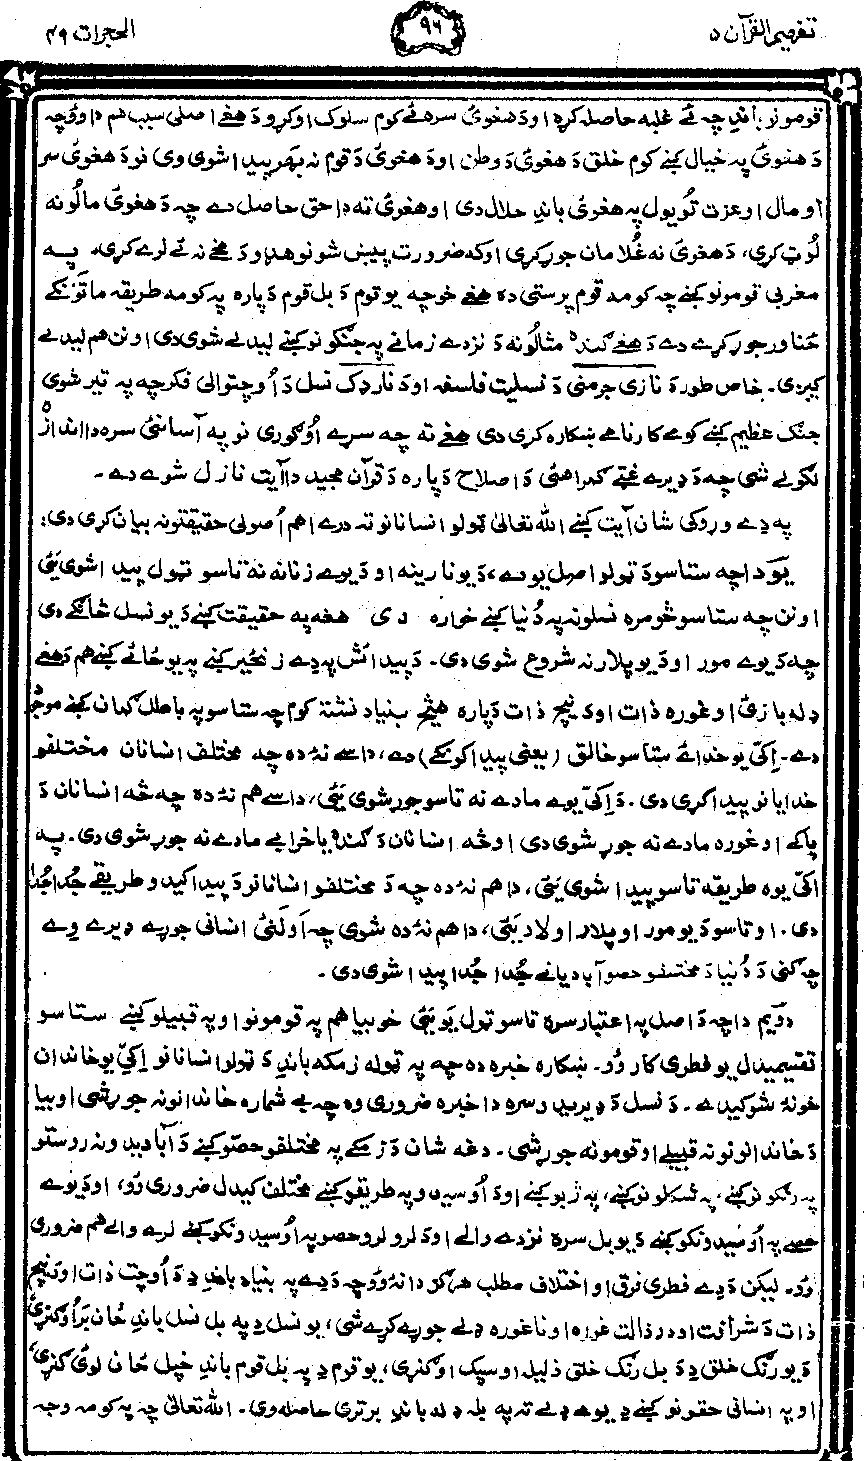 تفهیم القرآن ۵
۹۶
الحجرات ۴۹
قومونو باندِ چه ئے غلبه حاصله کړه اود هغوئ سره ئے کوم سلوک اوکړو دَ هغے اصلی سبب هم دا وُو چه
دَ هغوئ په خیال کښے کوم خلق دَ هغوئ دَ وطن اودَ هغوئ دَ قوم نه بهر پیدا شوی وی نو دَ هغوئ سر
او مال او عزت ټوپول په هغوئ باندِ حلال دی او هغوئ ته دا حق حاصل دے چه دَ هغوئ مالُونه
لُوټ کړی، دَ هغوئ نه غُلامان جوړ کړی اوکه ضرورت پیښ شو نو هغه دَ مخے نه ئے لرے کړی. په
مغربی قومونو کښے چه کومه قوم پرستی ده هغے خو چه یو قوم دَ بل قوم دَپاره په کومه طریقه ماتوُنکے
ځناور جوړ کړے دے دَ هغے ګنده مثالُونه دَ نزدے زمانے په جنګونو کښے لیدلے شوی دی او نن هم لیدلے
کیږی. خاص طور دَ نازی جرمنی دَ نسلیت فلسفه اودَ نارډِک نسل دَ اُوچتوالی فکر چه په تیر شوی
جنګ عظیم کښے کومے کارنامے ښکاره کړی دی هغے ته چه سړے اُوګوری نو په آسانئ سره دا اندازه
لګولے شی چه دَ ډیرے غټے ګمراهئ دَ اصلاح دَپاره دَ قرآن مجید دا آیت نازل شوے دے ـ
په دے وړوکی شان آیت کښے الله تعالیٰ ټولو انسانانو ته درے اهم اُصولی حقیقتونه بیان کړی دی:
یَو دا چه ستاسو دَ ټولو اصل یو دے، دَ یو نارینه او دَ یوے زنانه نه تاسو ټول پیدا شوی یئ
او نن چه ستاسو څومره نسلونه په دُنیا کښے خواره دی هغه په حقیقت کښے دَ یو نسل څانګے دی
چه دَ یوے مور او دَ یو پلار نه شروع شوی دی. دَ پیدائش په دے زنځیر کښے په یو ځائے کښے هم دَ هغے
ډله بازئ او غوره ذات او دَ نیچ ذات دَپاره هیڅ بنیاد نشته کوم چه ستاسو په باطل ګمان کښے موجود
دے ـ اِکی یو خدائے ستاسو خالق (یعنی پیدا کونکے) دے، داسے نه ده چه مختلف انسانان مختلفو
خدایانو پیدا کړی دی. دَ اِکی یوے مادے نه تاسو جوړ شوی یئ، داسے هم نه ده چه څه انسانان دَ
پاکے او غوره مادے نه جوړ شوی دی او څه انسانان دَ ګنده یا خرابے مادے نه جوړ شوی دی. په
اِکی یوه طریقه تاسو پیدا شوی یئ، دا هم نه ده چه دَ مختلفو انسانانو دَ پیدا کیدو طریقے جُدا جُدا
دی. او تاسو دَ یو مور او پلار اولاد یئ، دا هم نه ده شوی چه اَولنئ انسانی جوړے ډیرے وے
چه کنی دَ دُنیا دَ مختلفو حصو آبادیانے جُدا جُدا پیدا شوی دی ـ
دوئم دا چه دَ اصل په اعتبار سره تاسو ټول یَو یئ خو بیا هم په قومونو او په قبیلو کښے ستاسو
تقسیمیدل یو فطری کار وُو. ښکاره خبره ده چه په ټوله زمکه باندِ دَ ټولو انسانانو اِکی یو خاندان
خو نه شو کیدے. دَ نسل دَ ډیریدو سره دا خبره ضروری وه چه بے شماره خاندانونه جوړ شی او بیا
دَ خاندانونو نه قبیلے او قومونه جوړ شی. دغه شان دَ زمکے په مختلفو حصو کښے دَ آبادیدو نه روستو
په رنګونو کښے، په شکلونو کښے، په ژبو کښے او دَ اُوسیدو په طریقو کښے مختلف کیدل ضروری وُو، او دَ یوے
حصے په اُوسیدونکو کښے دَ یو بل سره نزدے والے او دَ لرو لرو حصو په اُوسیدونکو کښے لرے والے هم ضروری
وُو. لیکن دَ دے فطری فرق او اختلاف مطلب هرګز دا نه وُو چه دَ دے په بنیاد باندِ دِ دَ اُوچت ذات او دَ نیچ
ذات دَ شرافت او دَ رذالت غوره او ناغوره ډلے جوړے کړے شی، یو نسل دِ په بل نسل باندِ ځان بَر اُوګنړی
دَ یو رنګ خلق دِ دَ بل رنګ خلق ذلیل او سپک اوګنړی، یو قوم دِ په بل قوم باندِ خپل ځان لوئ ګنړی،
او په انسانی حقونو کښے دِ یوے ډلے ته په بله ډله باندِ برتری حاصله وی. الله تعالیٰ چه په کومه وجه